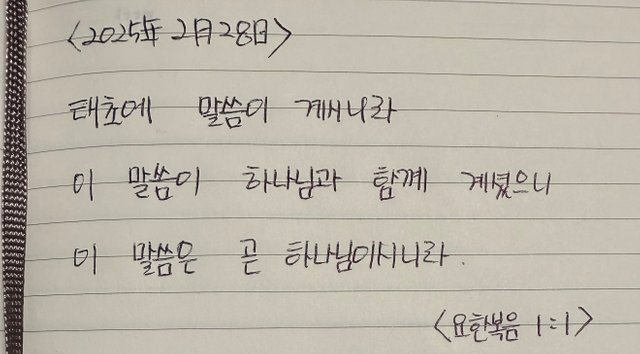 <2025年 2月 28日>
태초에 말씀이 계시니라
이 말씀이 하나님과 함께 계셨으니
이 말씀은 곧 하나님이시니라.
<요한복음 1:1>